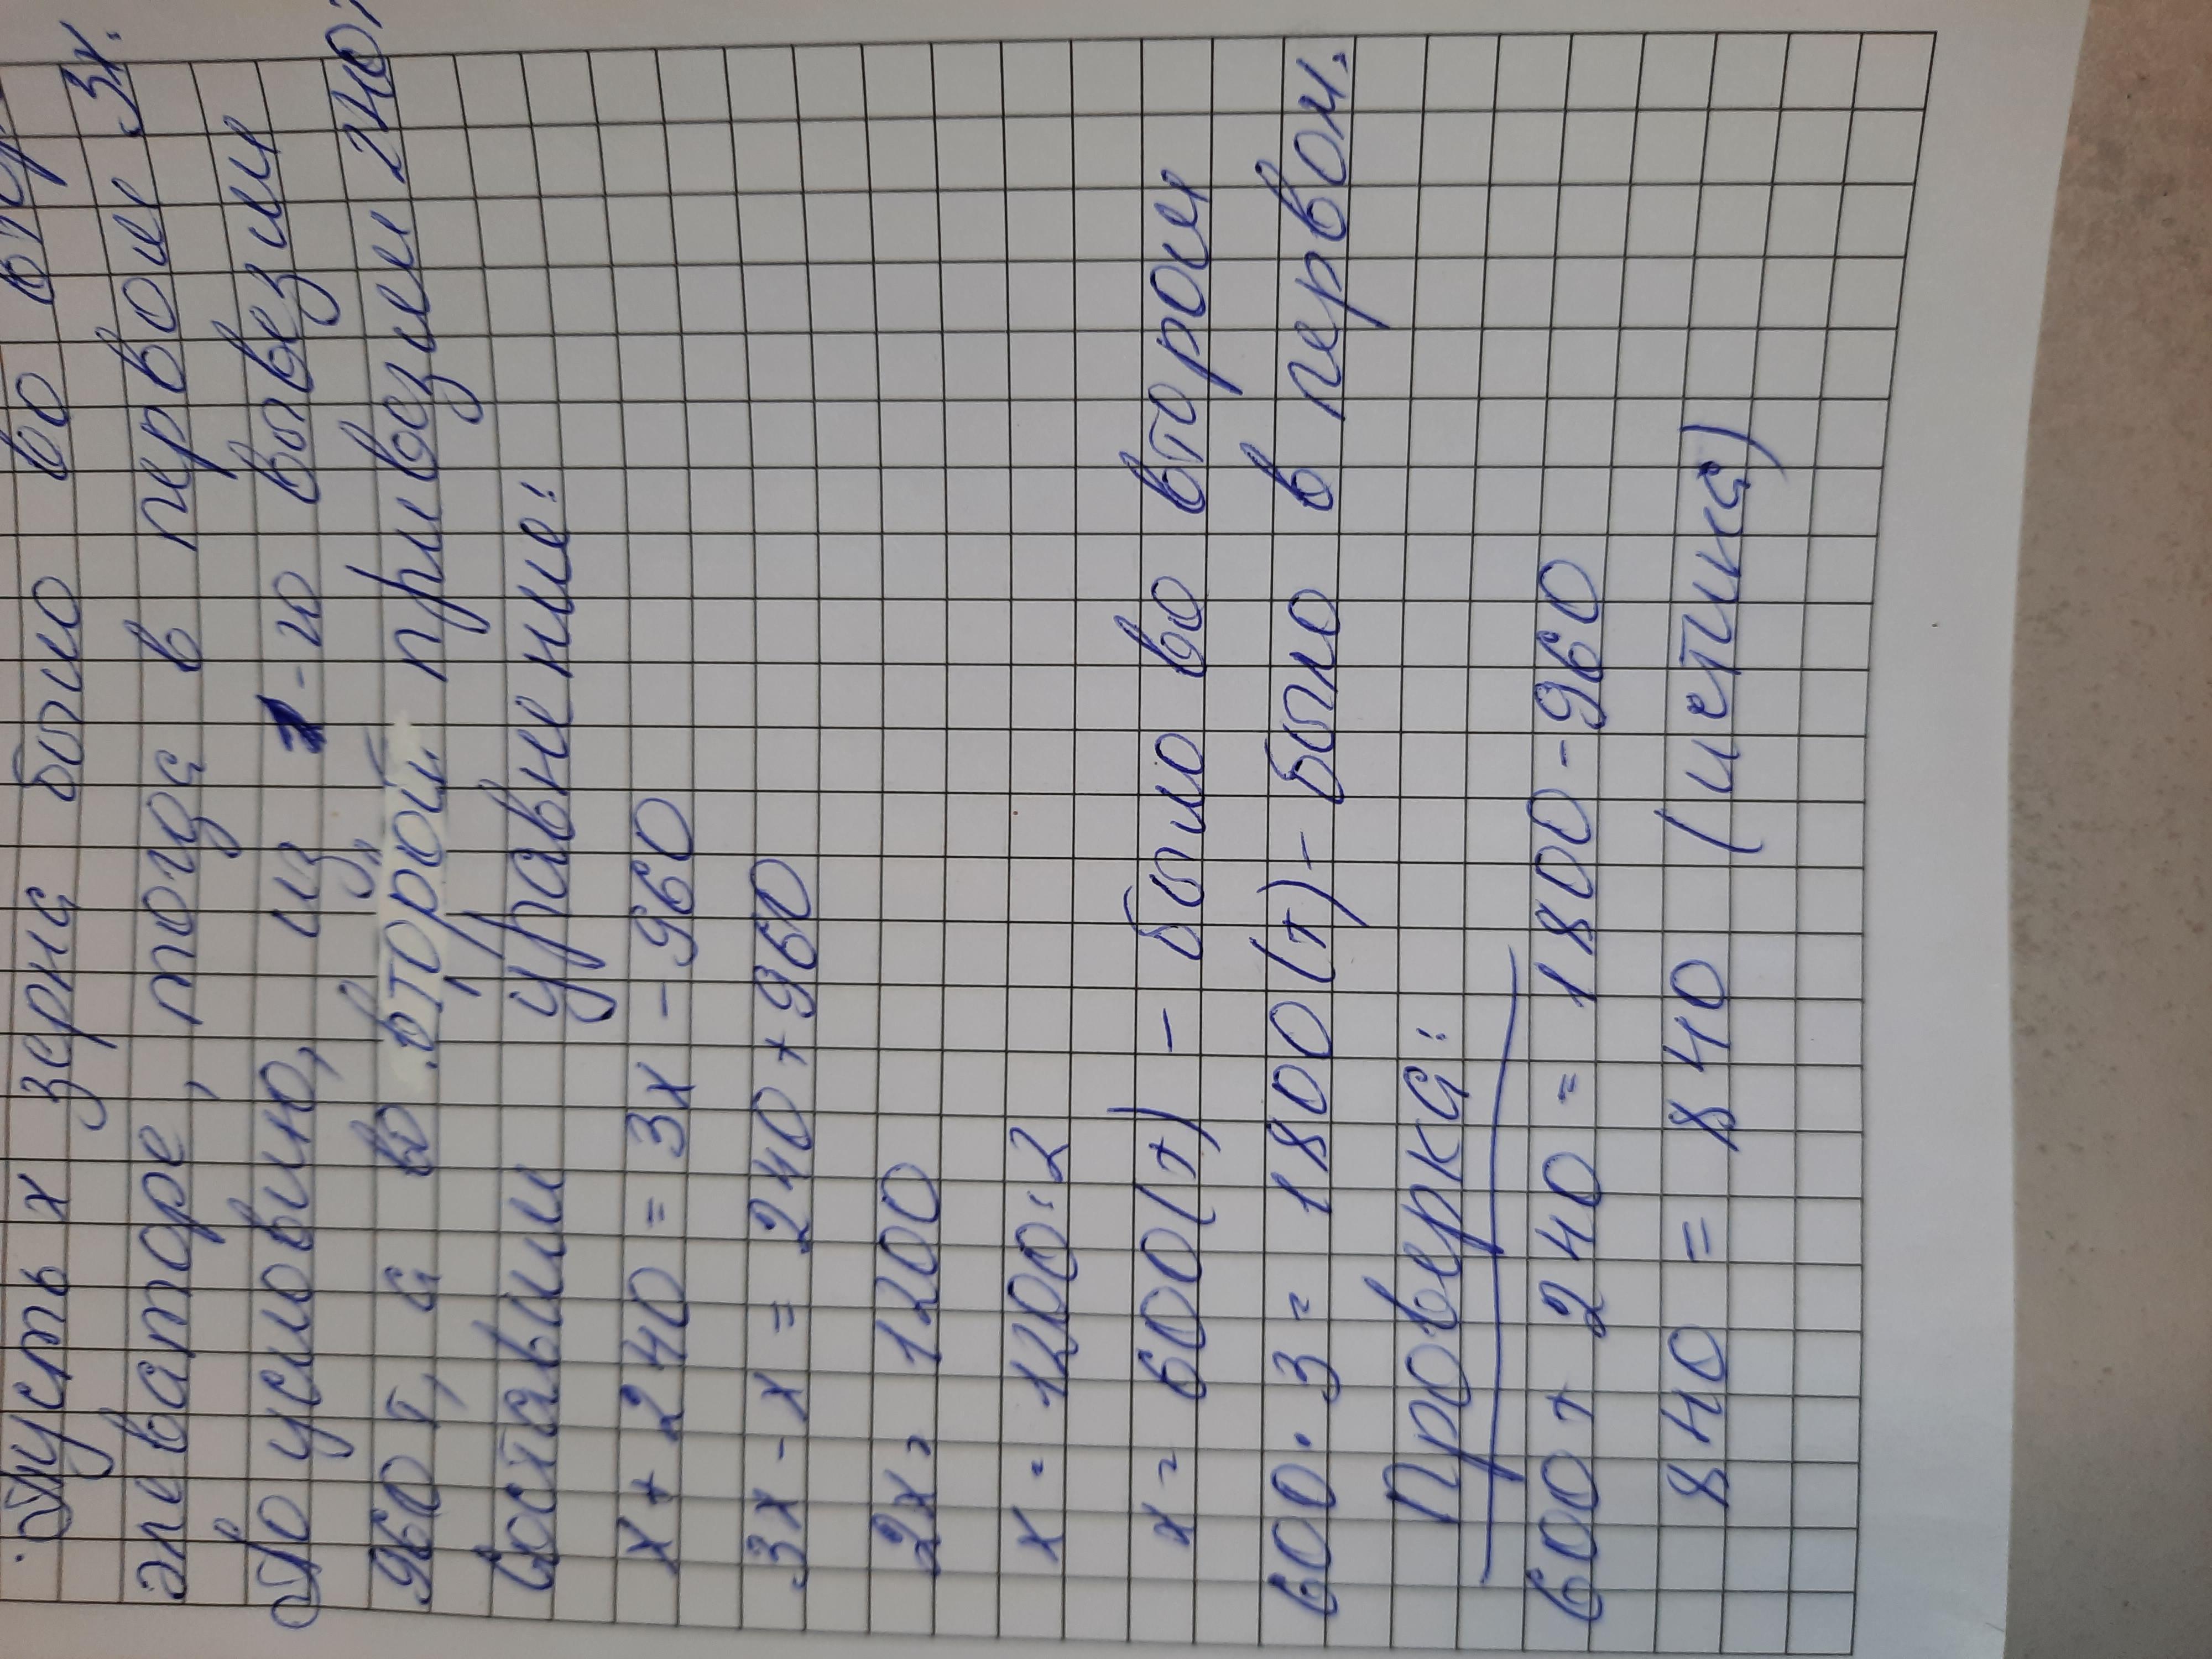 Пусть х зерна было во втор
элеваторе, тогда в первом 3х.
По условию, из 1-го вывезли
960 т, а во второй привезли 240т
Составим уравнение:
х + 240 = 3х - 960
3х - х = 240 + 960
2х = 1200
х = 1200:2
х = 600(т) - было во втором
600 · 3 = 1800(т) - было в первом.
Проверка:
600 + 240 = 1800 - 960
840 = 840 (истина)